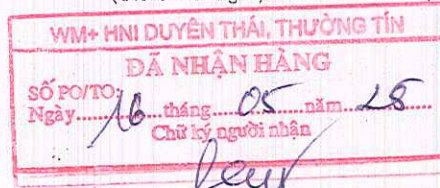 WM+ HNI DUYÊN THÁI, THƯỜNG TÍN
ĐÃ NHẬN HÀNG
SỐ PO/TO:
Ngày 16 tháng 05 năm 25
Chữ ký người nhận